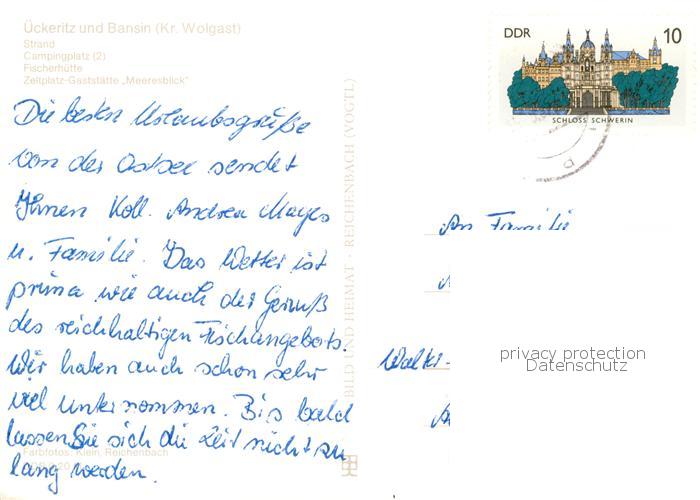 Ückeritz und Bansin (Kr. Wolgast)
Strand
Campingplatz (2)
Fischerhütte
Zeltplatz-Gaststätte „Meeresblick"
Die besten Urlaubsgrüße
von der Ostsee sendet
Ihnen Koll. Andrea Mayes
u. Familie. Das Wetter ist
prima wie auch der Genuß
des reichhaltigen Fischangebots.
Wir haben auch schon sehr
viel unternommen. Bis bald
lassen Sie sich die Zeit nicht zu
lang werden.
Farbfotos: Klein, Reichenbach
BILD UND HEIMAT · REICHENBACH (VOGTL)
DDR 10
SCHLOSS SCHWERIN
An Familie
Walter-
privacy protection
Datenschutz